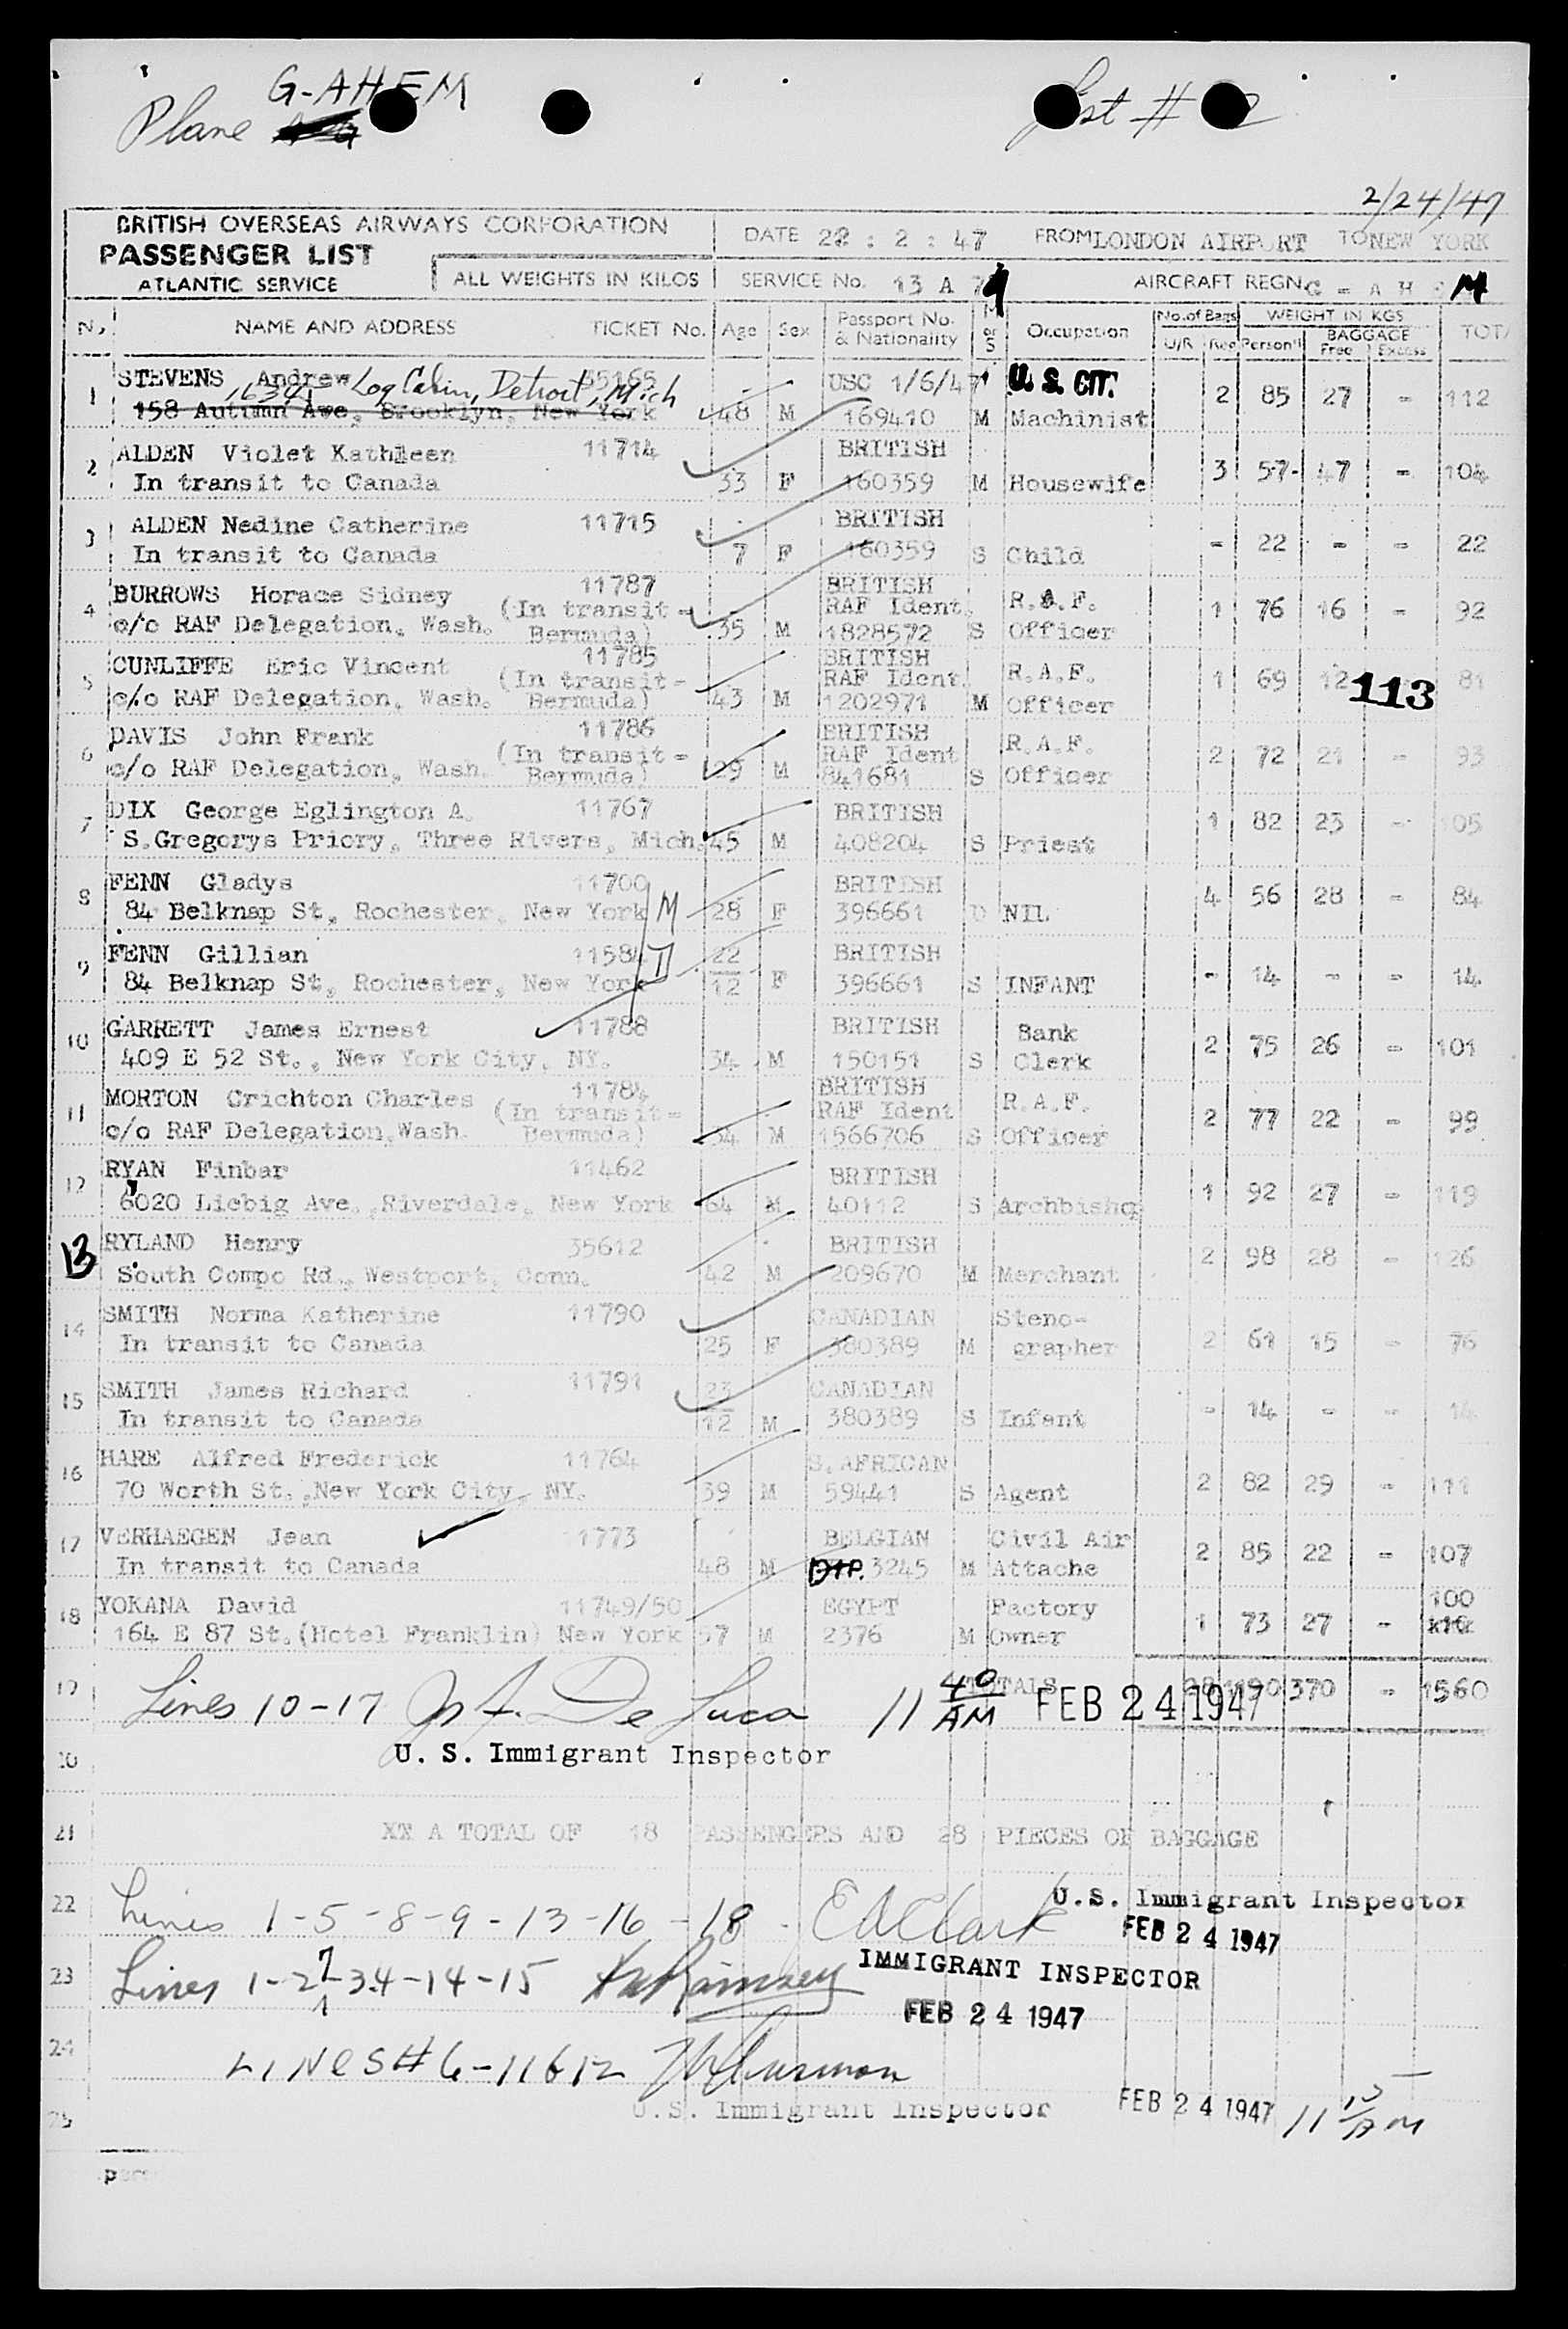 G-AHEM
Plane
List # 2
2/24/47
BRITISH OVERSEAS AIRWAYS CORPORATION
PASSENGER LIST
ATLANTIC SERVICE
ALL WEIGHTS IN KILOS
DATE 22 : 2 : 47 FROM LONDON AIRPORT TO NEW YORK
SERVICE No. 13 A 7 AIRCRAFT REGN. G - A H E M
No. NAME AND ADDRESS TICKET No. Age Sex Passport No. & Nationality M or S Occupation No. of Bags U/R Reg WEIGHT IN KGS Person'l BAGGAGE Free Excess TOTA
1 STEVENS Andrew 55165 USC 1/6/47 U.S. CIT.
16341 Log Cabin, Detroit, Mich
158 Autumn Ave, Brooklyn, New York 48 M 169410 M Machinist 2 85 27 - 112
2 ALDEN Violet Kathleen 11714 BRITISH
In transit to Canada 33 F 160359 M Housewife 3 57 47 - 104
3 ALDEN Nedine Catherine 11715 BRITISH
In transit to Canada 7 F 160359 S Child - 22 - - 22
4 BURROWS Horace Sidney 11787 BRITISH
(In transit - RAF Ident. R.A.F. 1 76 16 - 92
c/o RAF Delegation, Wash. Bermuda) 35 M 1828572 S Officer
5 CUNLIFFE Eric Vincent 11785 BRITISH
(In transit - RAF Ident. R.A.F. 1 69 12 81
c/o RAF Delegation, Wash. Bermuda) 43 M 1202971 M Officer
113
6 DAVIS John Frank 11786 BRITISH
(In transit - RAF Ident R.A.F. 2 72 21 - 93
c/o RAF Delegation, Wash. Bermuda) 29 M 841681 S Officer
7 DIX George Eglington A. 11767 BRITISH 1 82 23 - 105
S.Gregorys Priory, Three Rivers, Mich. 45 M 408204 S Priest
8 FENN Gladys 11700 BRITISH 4 56 28 - 84
84 Belknap St, Rochester, New York M 28 F 396661 D NIL
9 FENN Gillian 11584 22 BRITISH
84 Belknap St, Rochester, New York 12 F 396661 S INFANT - 14 - - 14
10 GARRETT James Ernest 11788 BRITISH Bank
409 E 52 St., New York City, NY. 34 M 150151 S Clerk 2 75 26 - 101
11 MORTON Crichton Charles 11784 BRITISH
(In transit - RAF Ident R.A.F. 2 77 22 - 99
c/o RAF Delegation, Wash. Bermuda) 34 M 1566706 S Officer
12 RYAN Finbar 11462 BRITISH
6020 Liebig Ave., Riverdale, New York 64 M 40112 S Archbishop 1 92 27 - 119
13 RYLAND Henry 35612 BRITISH 2 98 28 - 126
South Compo Rd., Westport, Conn. 42 M 209670 M Merchant
14 SMITH Norma Katherine 11790 CANADIAN Steno-
In transit to Canada 25 F 380389 M grapher 2 61 15 - 76
15 SMITH James Richard 11791 23 CANADIAN
In transit to Canada 12 M 380389 S Infant - 14 - - 14
16 HARE Alfred Frederick 11764 S.AFRICAN
70 Worth St., New York City, NY. 39 M 59441 S Agent 2 82 29 - 111
17 VERHAEGEN Jean 11773 BELGIAN Civil Air
In transit to Canada 48 M DIP. 3245 M Attache 2 85 22 - 107
18 YOKANA David 11749/50 EGYPT Factory 100
164 E 87 St. (Hotel Franklin) New York 57 M 2376 M Owner 1 73 27 -
19 TOTALS 28 1190 370 - 1560
Lines 10-17 De Luca 11 40 AM FEB 24 1947
U. S. Immigrant Inspector
20
21 XX A TOTAL OF 18 PASSENGERS AND 28 PIECES OF BAGGAGE
22 Lines 1-5-8-9-13-16-18. E A Clark U.S. Immigrant Inspector
FEB 24 1947
IMMIGRANT INSPECTOR
23 Lines 1-2-7-3-4-14-15 Ramsey
FEB 24 1947
24 LINES # 6-11 & 12
25 U.S. Immigrant Inspector FEB 24 1947 11 15 AM